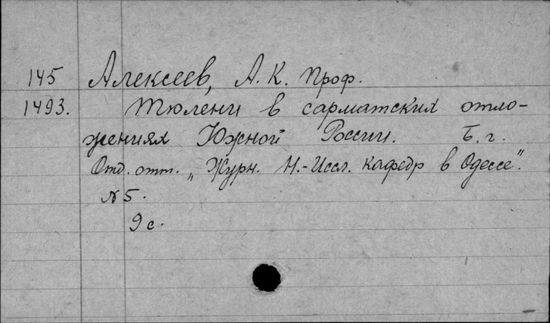 145 Алексеев, А. К. Проф.
1493. Тюлени в сарматских отло-
жениях Южной России. Б. г.
Отд. отт. „Журн. Н.-Иссл. Кафедр в Одессе".
№ 5.
9 с.